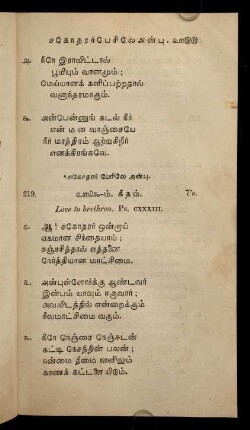 சகோதரர்பேரிலே அன்பு.
௮. நீரே இராவிட்டால்
பூமியும் வானமும் ;
மெய்யானக் களிப்பற்றதால்
வனாந்தரமாகும்.
௯. அன்பென்னுங் கடல் நீர்
என் ம ன வாஞ்சையே
நீர் மாத்திரம் ஆற்றுகிறீர்
எனக்கிரங்கவே.
சகோதரர் பேரிலே அன்பு.
219. கீதம். 7's.
Love to brethren. Ps. CXXXIII.
௧. ஆ! சகோதரர் ஒன்றாய்
ஏகமான சிந்தையாய் ;
சஞ்சரித்தால் எத்தனை
நேர்த்தியான மாட்சிமை.
௨. அன்புள்ளோர்க்கு ஆண்டவர்
இன்பம் யாவும் ஈருவார் ;
அவவிடத்தில் என்றைக்கும்
சீவமாட்சிமை வரும்.
௩. நீரே நெஞ்சை நெஞ்சுடன்
கட்டி நேசத்தின் பலன் ;
நன்மை தீமை நாளிலும்
காணக் கட்டளையிடும்.